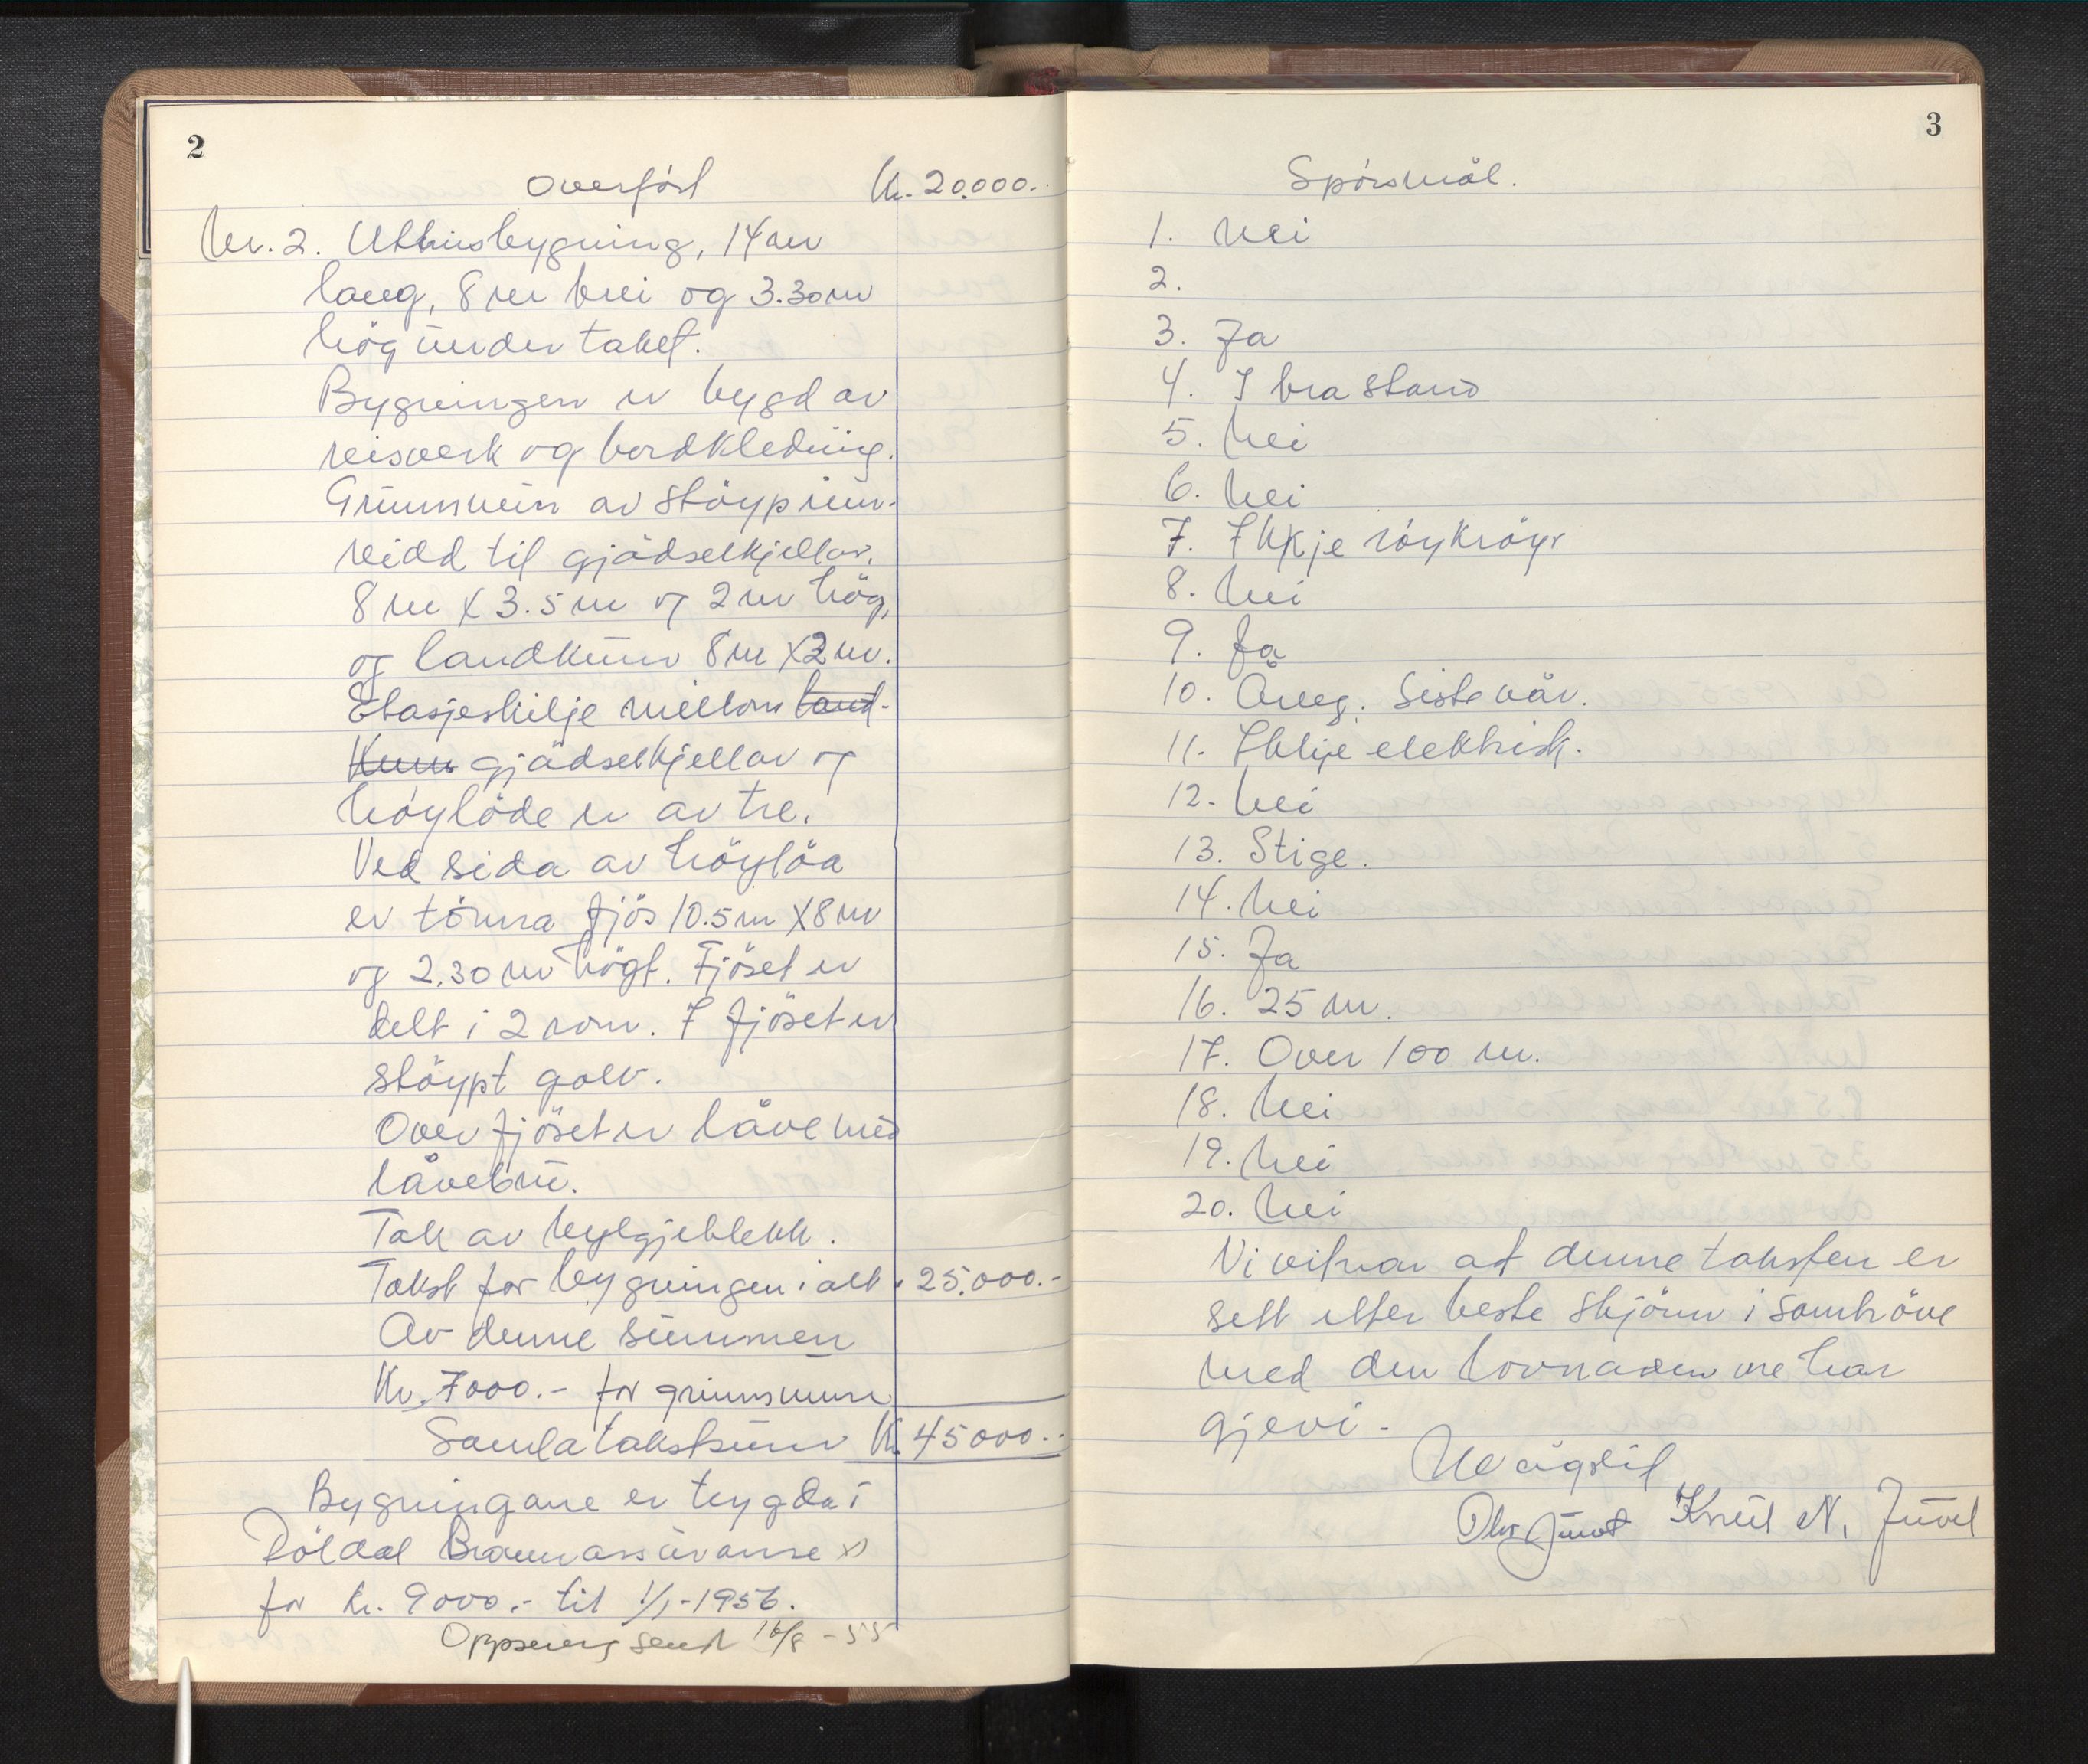 2
Overfört Kr. 20.000.-
Nr. 2. Uthusbygning, 14 m
lang, 8 m brei og 3.30 m
hög under taket.
Bygningen er bygd av
reisverk og bordkledning.
Grunnmur av stöyp inn-
reidd til gjödselkjellar.
8 m x 3.5 m og 2 m hög,
og landkum 8 m x 2 m.
Etasjeskilje mellom land-
kum gjödselkjellar og
höylöde er av tre.
Ved sida av höylöa
er tömra fjös 10.5 m x 8 m
og 2.30 m högt. Fjöset er
delt i 2 rom. I fjöset er
stöypt golv.
Over fjöset er låve med
låvebru.
Tak av bylgjeblekk.
Takst for bygningen i alt " 25.000.-
Av denne summen
Kr. 7000.- for grunnmur
Samla takstsum Kr. 45000.-
Bygningane er trygda i
Röldal Brannassuranse x)
for kr. 9000.- til 1/1-1956.
Oppseiing sendt 16/8 - 55
3
Spörsmål.
1. Nei
2.
3. Ja
4. I bra stand
5. Nei
6. Nei
7. Ikkje röykröyr
8. Nei
9. Ja
10. Årleg. Siste vår.
11. Ikkje elektrisk.
12. Nei
13. Stige.
14. Nei
15. Ja
16. 25 m.
17. Over 100 m.
18. Nei
19. Nei
20. Nei
Vi vitnar at denne taksten er
sett etter beste skjönn i samhöve
med den lovnaden me har
gjevi.
Olav Juvet Knut N. Juvet